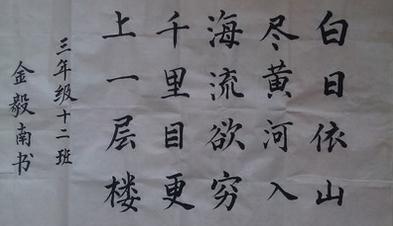 白日依山
尽黄河入
海流欲穷
千里目更
上一层楼
三年级十二班
金毅南书